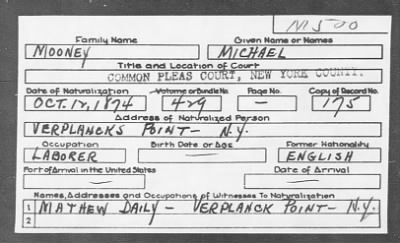 M500
Family Name Given Name or Names
MOONEY MICHAEL
Title and Location of Court
COMMON PLEAS COURT, NEW YORK COUNTY.
Date of Naturalization Volume or Bundle No. Page No. Copy of Record No.
OCT. 12, 1874 429 — 175
Address of Naturalized Person
VERPLANCKS POINT – N.Y.
Occupation Birth Date or Age Former Nationality
LABORER — ENGLISH
Port of Arrival in the United States Date of Arrival
— —
Names, Addresses and Occupations of Witnesses To Naturalization
1 MATHEW DAILY – VERPLANCK POINT – N.Y.
2